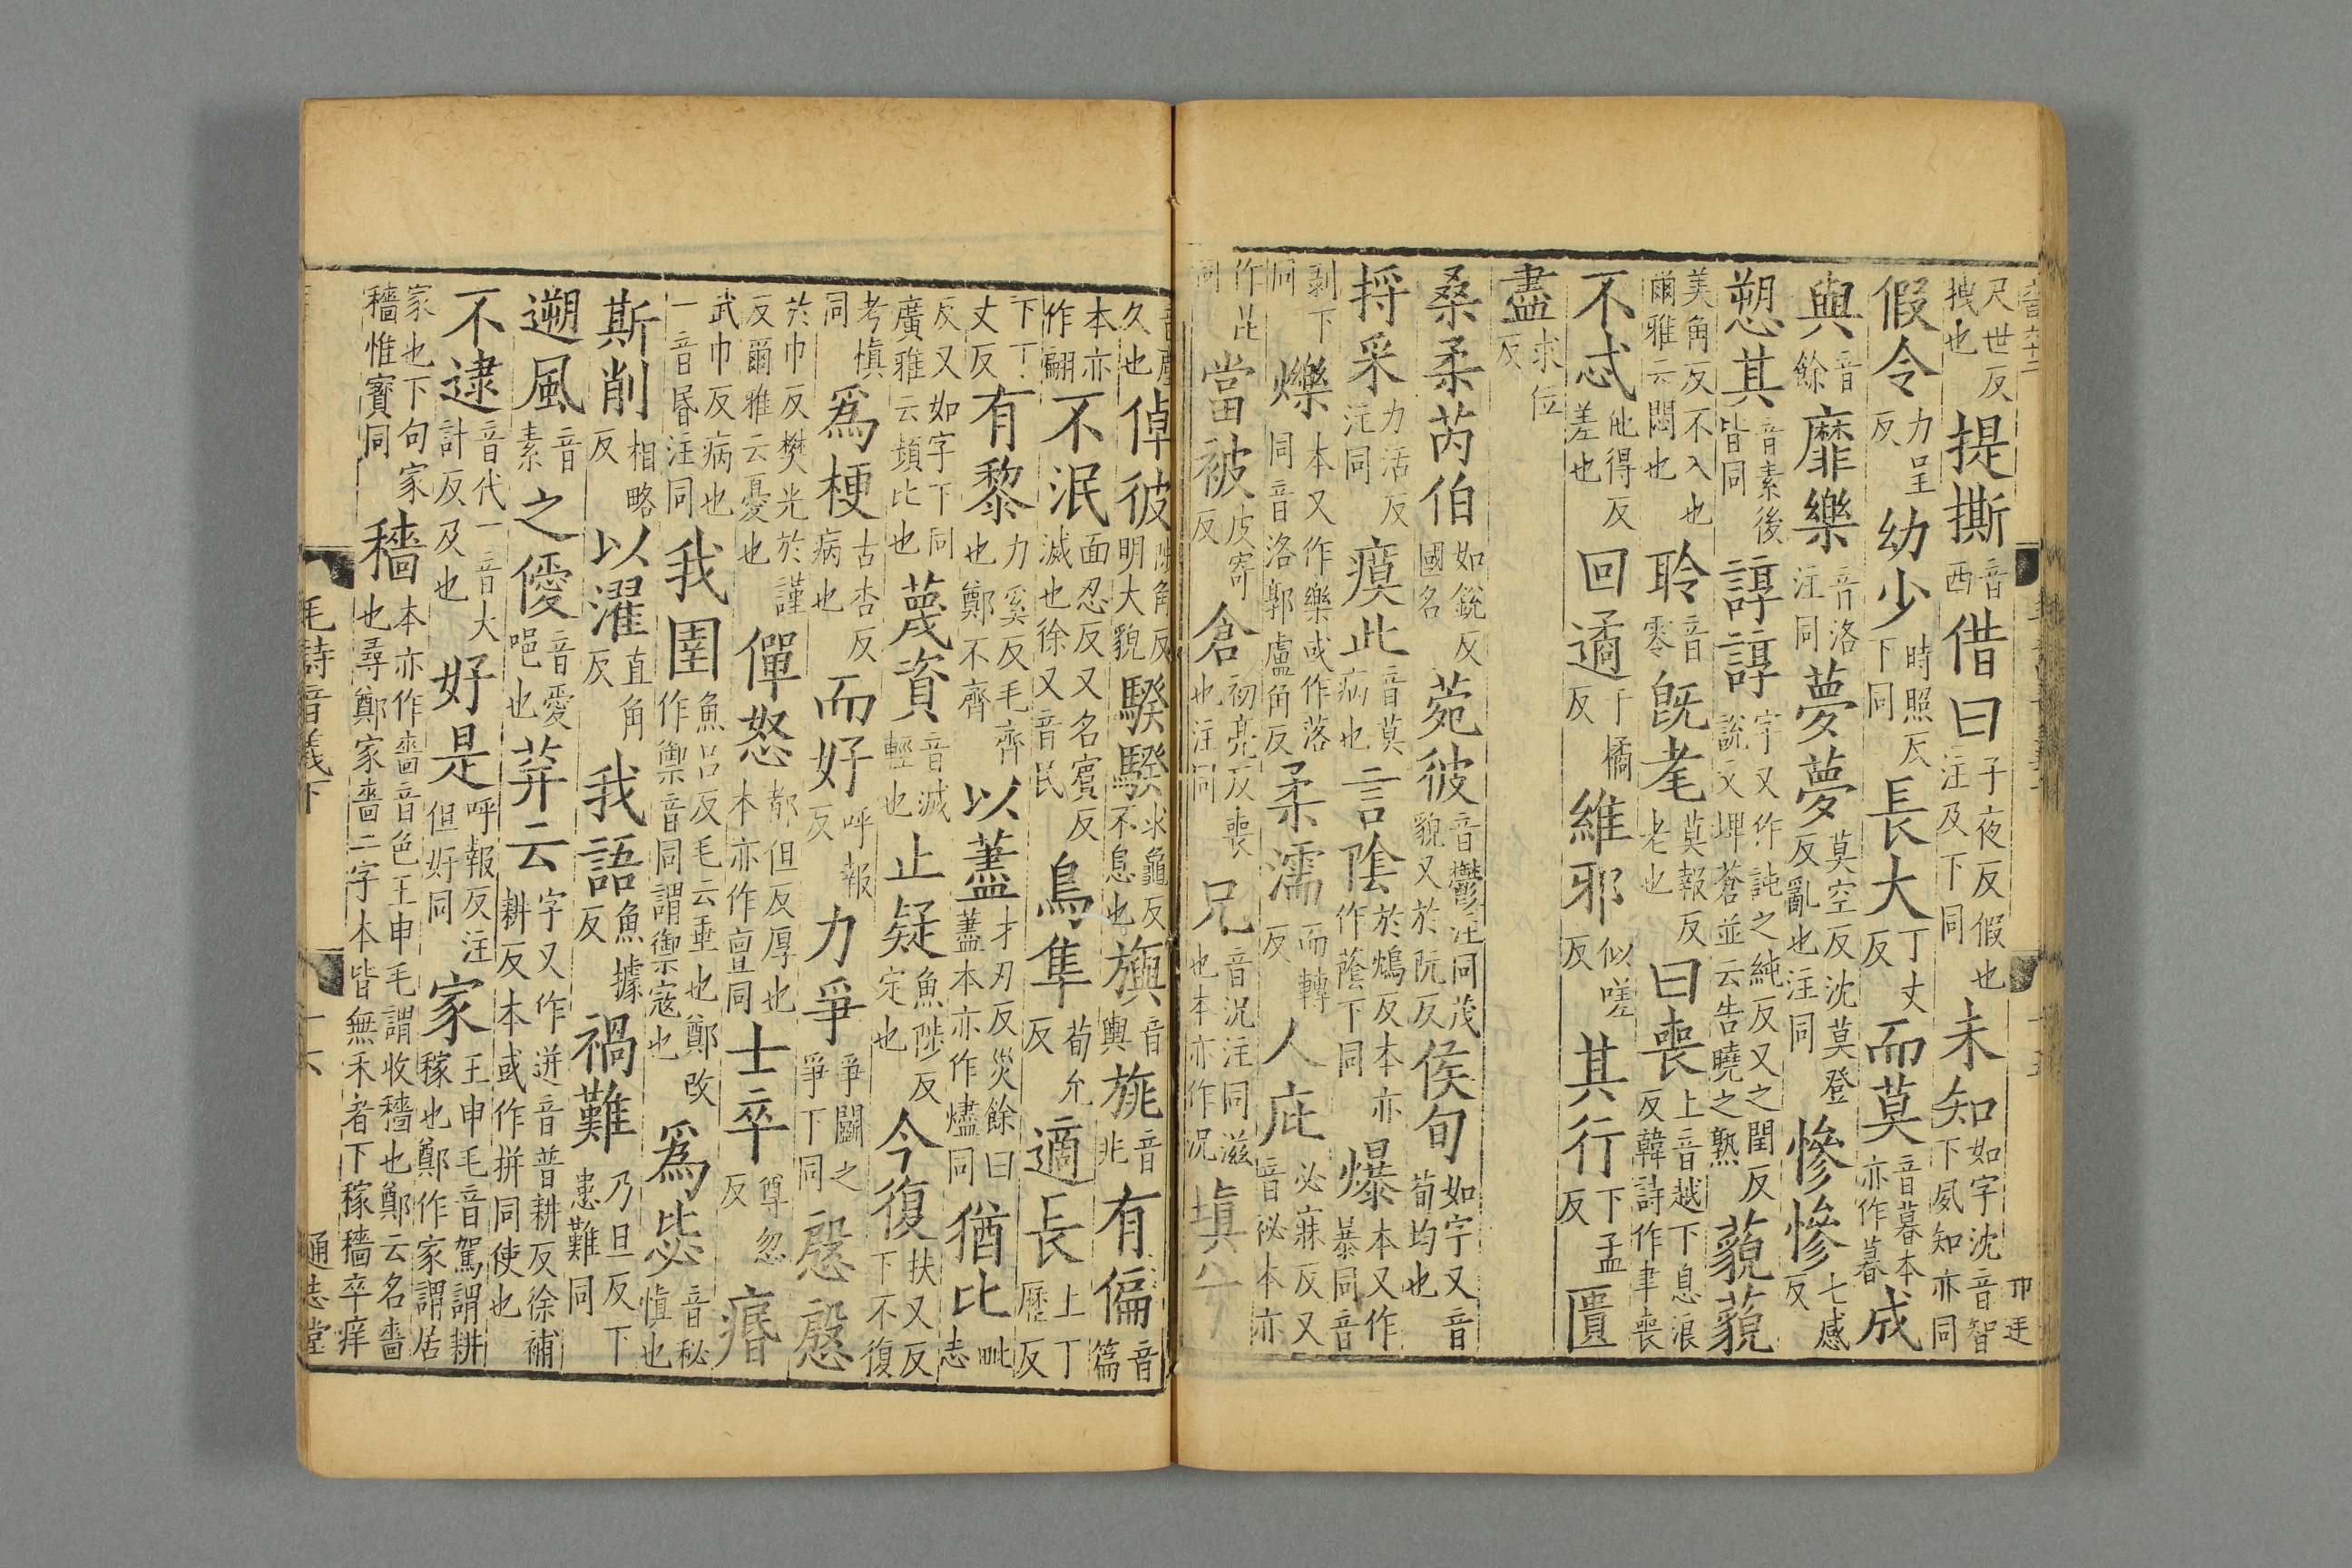 尺世反拽也提撕音西借曰子夜反假也注及下同未知如字沈音智下夙知亦同
假令力呈反幼少時照反下同長大丁丈反而莫音暮本亦作暮成
與音餘靡樂音洛注同夢夢莫空反沈莫登反亂也注同慘慘七感反
愬其音素後皆同諄諄字又作訰之純反又之閏反說文埤蒼並云告曉之熟藐藐
美角反不入也爾雅云悶也聆音零旣耄莫報反老也曰喪上音越下息浪反韓詩作聿喪
不忒他得反差也回遹于橘反維邪似嗟反其行下孟反匱
盡求位反
桑柔芮伯如銳反國名菀彼音鬱注同茂貌又於阮反侯旬如字又音荀均也
捋采力活反注同瘼此音莫病也言陰於鴆反本亦作蔭下同爆本又作暴同音
剥下同爍本又作樂或作落同音洛郭盧角反柔濡而轉反人庇必寐反又音祕本亦
作芘同當被皮寄反倉初亮反喪也注同兄音況注同滋也本亦作況填
久也倬彼陟角反明大貌騤騤求龜反不息也旟音輿旐音兆有偏音篇
本亦作翩不泯面忍反又名賓反滅也徐又音民鳥隼荀允反適長上丁歷反
下丁丈反有黎力奚反毛齊也鄭不齊以藎才刃反災餘曰藎本亦作燼同猶比毗志
反又如字下同廣雅云頻比也蔑資音滅輕也止疑魚陟反定也今復扶又反下不復
考慎同爲梗古杏反病也而好呼報反力爭爭鬭之爭下同慇慇
於巾反樊光於謹反爾雅云憂也僤怒都但反厚也本亦作亶同士卒尊忽反瘏
武巾反病也一音昬注同我圉魚呂反毛云垂也鄭改作禦音同謂禦寇也爲毖音祕愼也
斯削相略反以濯直角反我語魚據反禍難乃旦反下患難同
遡風音素之僾音愛唈也荓云字又作迸音普耕反徐補耕反本或作拼同使也
不逮音代一音大計反及也好是呼報反注但好同家王申毛音駕謂耕稼也鄭作家謂居
家也下句家穡惟寳同穡本亦作嗇音色王申毛謂收穡也鄭云名嗇也尋鄭家嗇二字本皆無禾者下稼穡卒痒
毛詩音義下 十六 通志堂